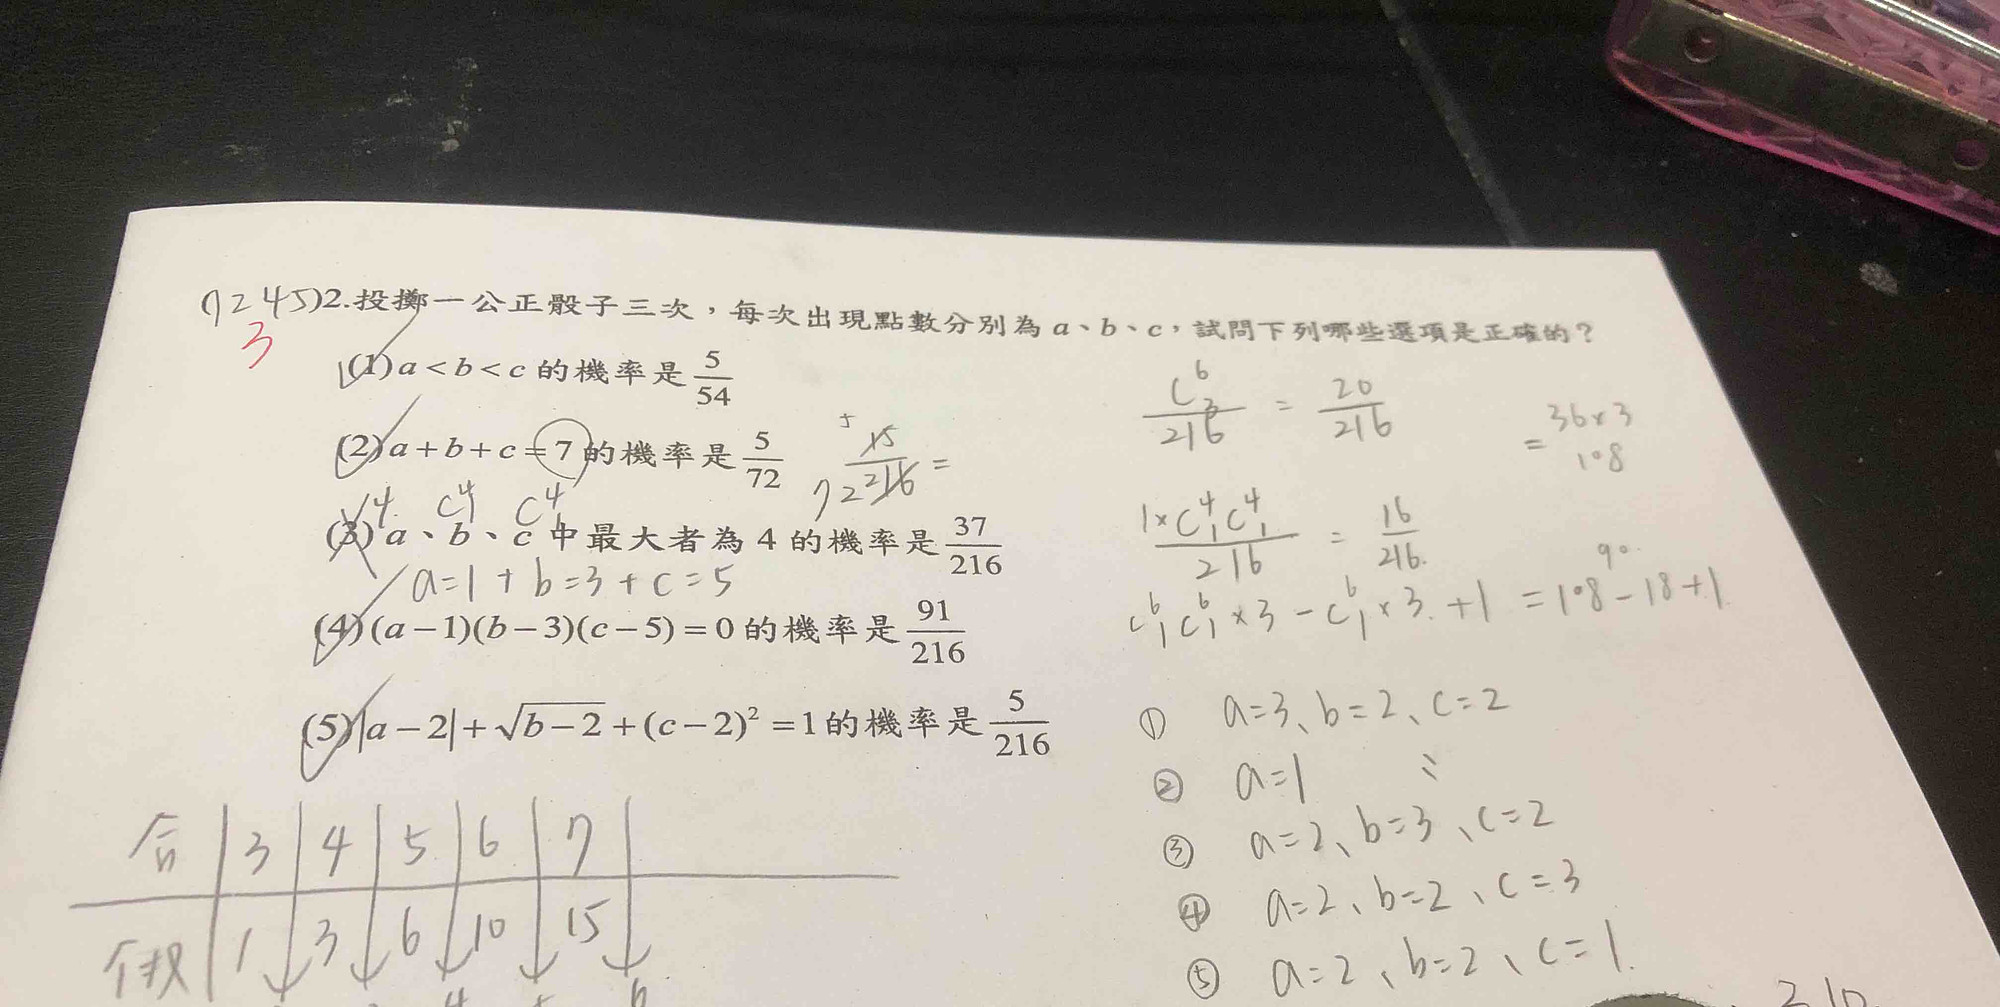 (1245)2.投擲一公正骰子三次，每次出現點數分別為 a、b、c，試問下列哪些選項是正確的？
3
(1) a < b < c 的機率是 5/54
(2) a + b + c = 7 的機率是 5/72
15/216 =
5
72
4 C⁴₁ C⁴₁
(3) a、b、c 中最大者為 4 的機率是 37/216
a=1 + b=3 + c=5
(4) (a−1)(b−3)(c−5) = 0 的機率是 91/216
(5) |a−2| + √(b−2) + (c−2)² = 1 的機率是 5/216
C⁶₃/216 = 20/216
= 36×3
108
1×C⁴₁C⁴₁/216 = 16/216
90
C⁶₁C⁶₁×3 − C⁶₁×3 + 1 = 108−18+1
① a=3、b=2、c=2
② a=1 〃
③ a=2、b=3、c=2
④ a=2、b=2、c=3
⑤ a=2、b=2、c=1
合 3 4 5 6 7
1 3 6 10 15
4 5 6